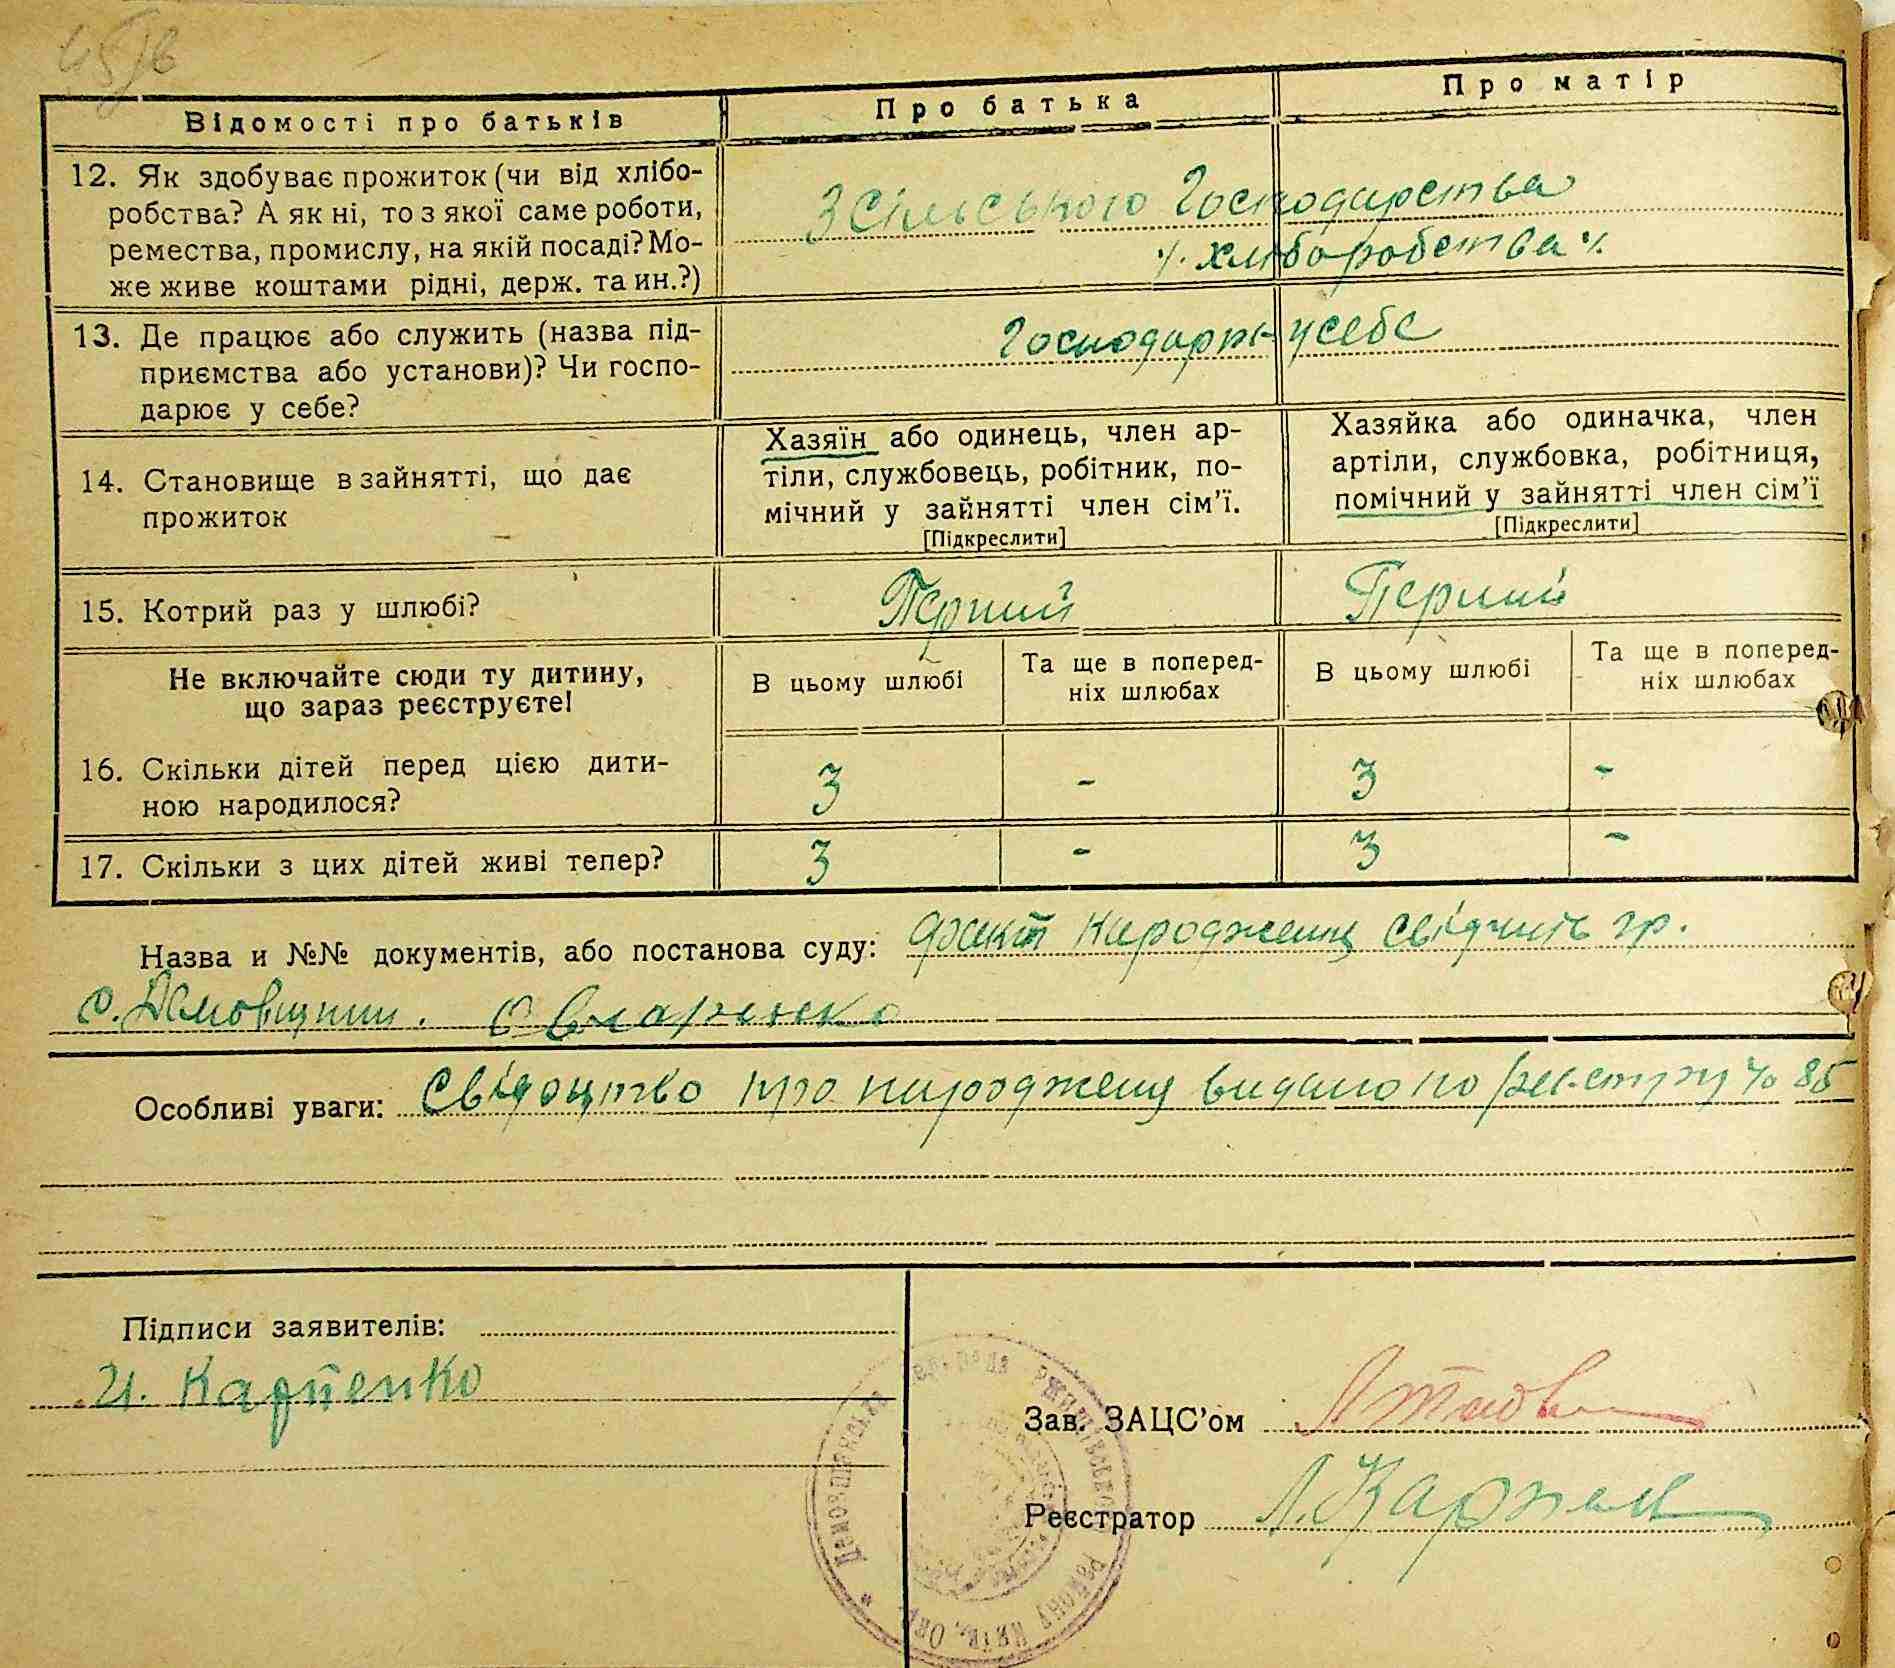 45зв
Відомості про батьків
Про батька
Про матір
12. Як здобуває прожиток (чи від хлібо-
робства? А як ні, то з якої саме роботи,
ремества, промислу, на якій посаді? Мо-
же живе коштами рідні, держ. та ин.?)
З Сільського Господарства
·/. хліборобства ·/.
13. Де працює або служить (назва під-
приємства або установи)? Чи госпо-
дарює у себе?
Господарює у себе
14. Становище в зайнятті, що дає
прожиток
Хазяїн або одинець, член ар-
тіли, службовець, робітник, по-
мічний у зайнятті член сім'ї.
[Підкреслити]
Хазяйка або одиначка, член
артіли, службовка, робітниця,
помічний у зайнятті член сім'ї
[Підкреслити]
15. Котрий раз у шлюбі?
Перший
Перший
Не включайте сюди ту дитину,
що зараз реєструєте!
В цьому шлюбі
Та ще в поперед-
ніх шлюбах
В цьому шлюбі
Та ще в поперед-
ніх шлюбах
16. Скільки дітей перед цією дити-
ною народилося?
3 - 3 -
17. Скільки з цих дітей живі тепер?
3 - 3 -
Назва и №№ документів, або постанова суду: Факт народження свідчить гр.
с. Демовщини.
Особливі уваги: Свідоцтво про народження видано по реєстру № 85
Підписи заявителів:
И. Карпенко
Зав. ЗАЦС'ом
Реєстратор
Демовщанська сільрада Ржищівського району Київ. Окр.